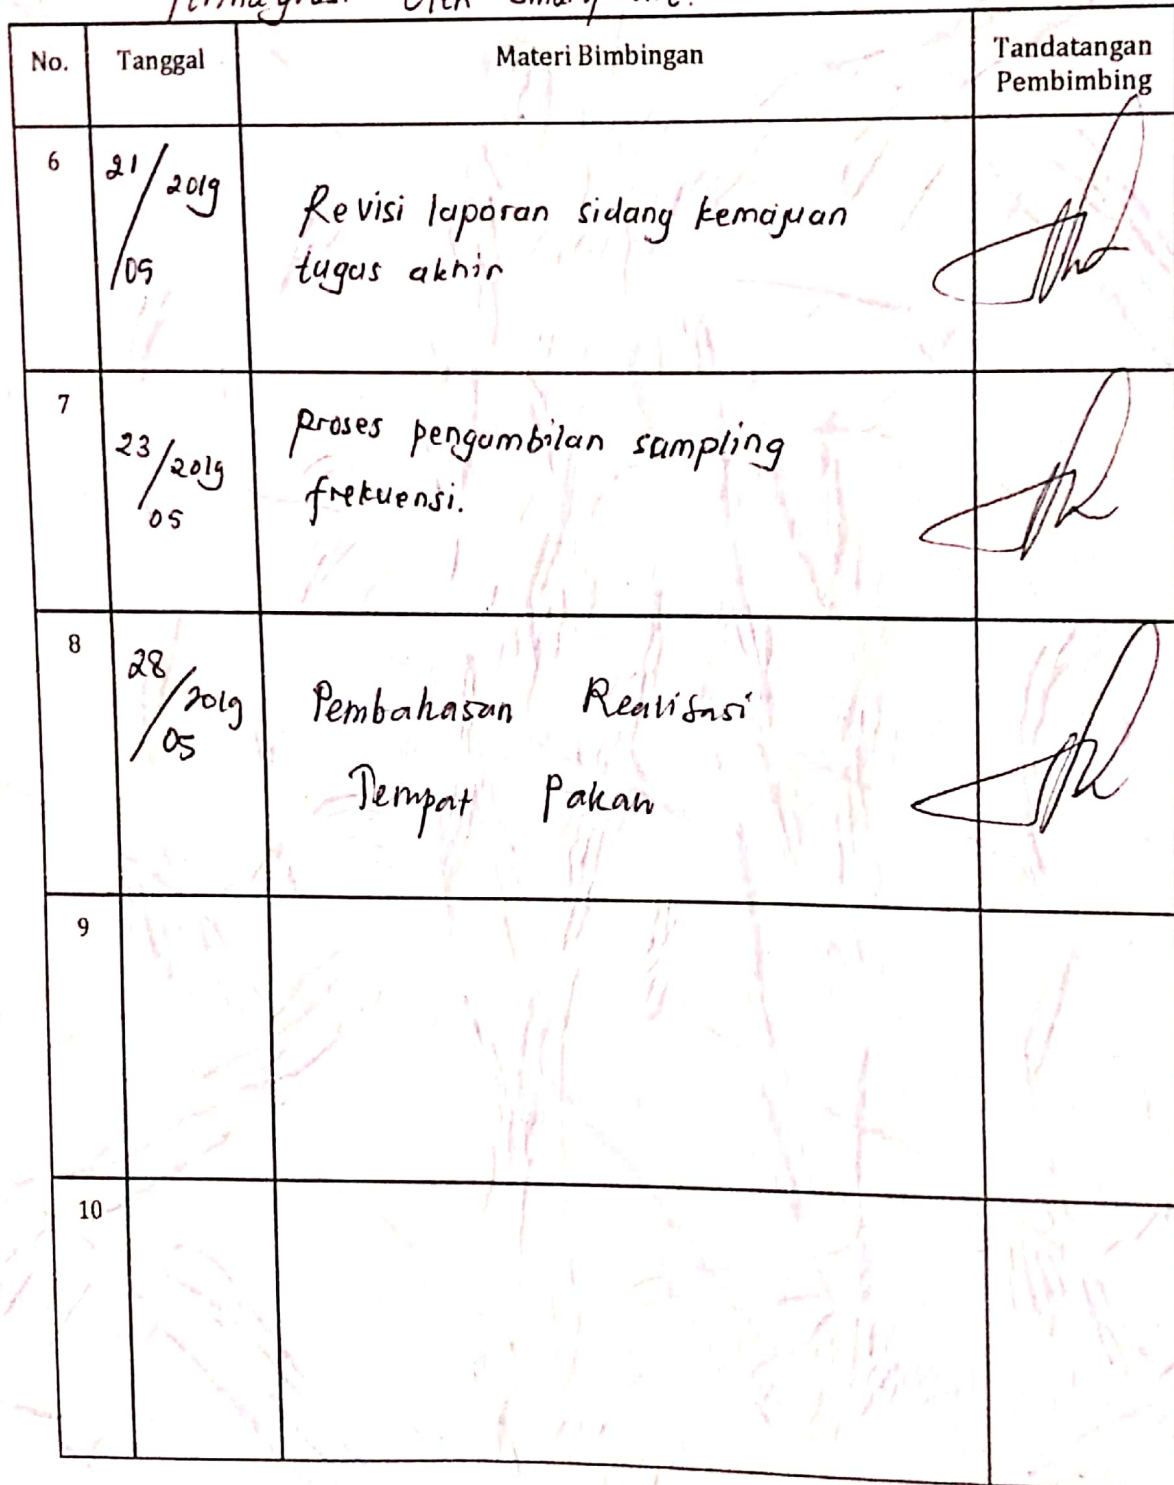 Oleh
No. Tanggal Materi Bimbingan Tandatangan
Pembimbing
6 21/2019
/05
Revisi laporan sidang kemajuan
tugas akhir
7 23/2019
05
proses pengambilan sampling
frekuensi.
8 28/2019
05
Pembahasan Realisasi
Tempat Pakan
9
10